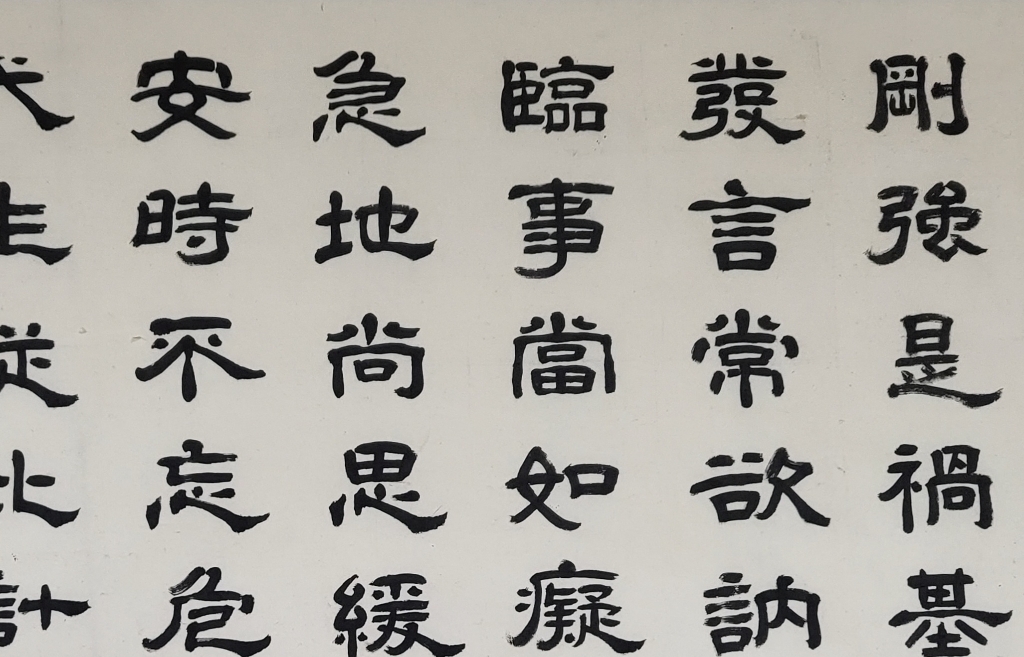 剛強是禍基
發言常欲訥
臨事當如癡
急地尚思緩
安時不忘危
生從此計